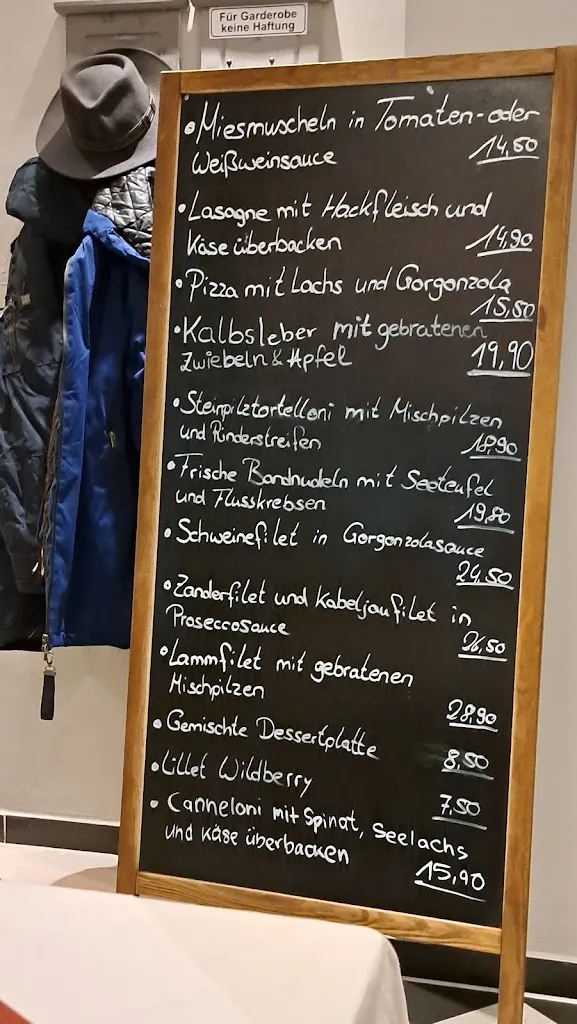 Für Garderobe
keine Haftung
• Miesmuscheln in Tomaten- oder
Weißweinsauce 14,50
• Lasagne mit Hackfleisch und
Käse überbacken 14,90
• Pizza mit Lachs und Gorgonzola
15,50
• Kalbsleber mit gebratenen
Zwiebeln & Apfel 19,90
• Steinpilztortelloni mit Mischpilzen
und Rinderstreifen 18,90
• Frische Bandnudeln mit Seeteufel
und Flusskrebsen 19,80
• Schweinefilet in Gorgonzolasauce
24,50
• Zanderfilet und Kabeljaufilet in
Proseccosauce 26,50
• Lammfilet mit gebratenen
Mischpilzen 28,90
• Gemischte Dessertplatte 8,50
• Lillet Wildberry 7,50
• Canneloni mit Spinat, Seelachs
und Käse überbacken 15,90